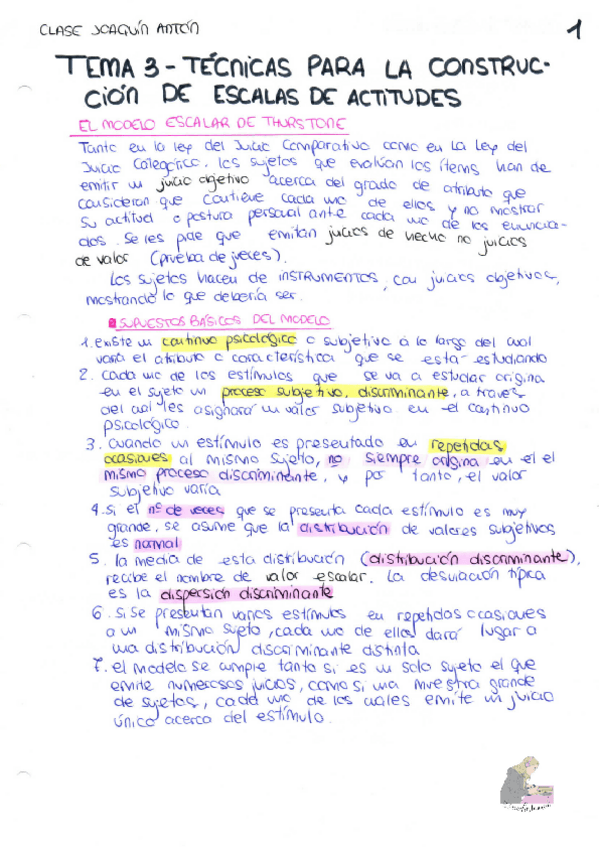 CLASE JOAQUÍN ANTÓN
1
TEMA 3 - TÉCNICAS PARA LA CONSTRUC-
CIÓN DE ESCALAS DE ACTITUDES
EL MODELO ESCALAR DE THURSTONE
Tanto en la ley del Juicio Comparativo como en la Ley del
Juicio Categórico, los sujetos que evalúan los ítems han de
emitir un juicio objetivo acerca del grado de atributo que
consideran que contiene cada uno de ellos y no mostrar
su actitud o postura personal ante cada uno de los enuncia-
dos. Se les pide que emitan juicios de hecho no juicios
de valor (prueba de jueces).
Los sujetos hacen de INSTRUMENTOS, con juicios objetivos,
mostrando lo que debería ser.
SUPUESTOS BÁSICOS DEL MODELO
1. existe un continuo psicológico o subjetivo a lo largo del cual
varía el atributo o característica que se está estudiando
2. cada uno de los estímulos que se va a estudiar origina
en el sujeto un proceso subjetivo, discriminante, a través
del cual les asignará un valor subjetivo en el continuo
psicológico.
3. cuando un estímulo es presentado en repetidas
ocasiones al mismo sujeto, no siempre origina en el el
mismo proceso discriminante, y por tanto, el valor
subjetivo varía
4. si el nº de veces que se presenta cada estímulo es muy
grande, se asume que la distribución de valores subjetivos
es normal
5. la media de esta distribución (distribución discriminante),
recibe el nombre de valor escalar. La desviación típica
es la dispersión discriminante
6. si se presentan varios estímulos en repetidas ocasiones
a un mismo sujeto, cada uno de ellos dará lugar a
una distribución discriminante distinta
7. el modelo se cumple tanto si es un solo sujeto el que
emite numerosos juicios, como si una muestra grande
de sujetos, cada uno de los cuales emite un juicio
único acerca del estímulo.